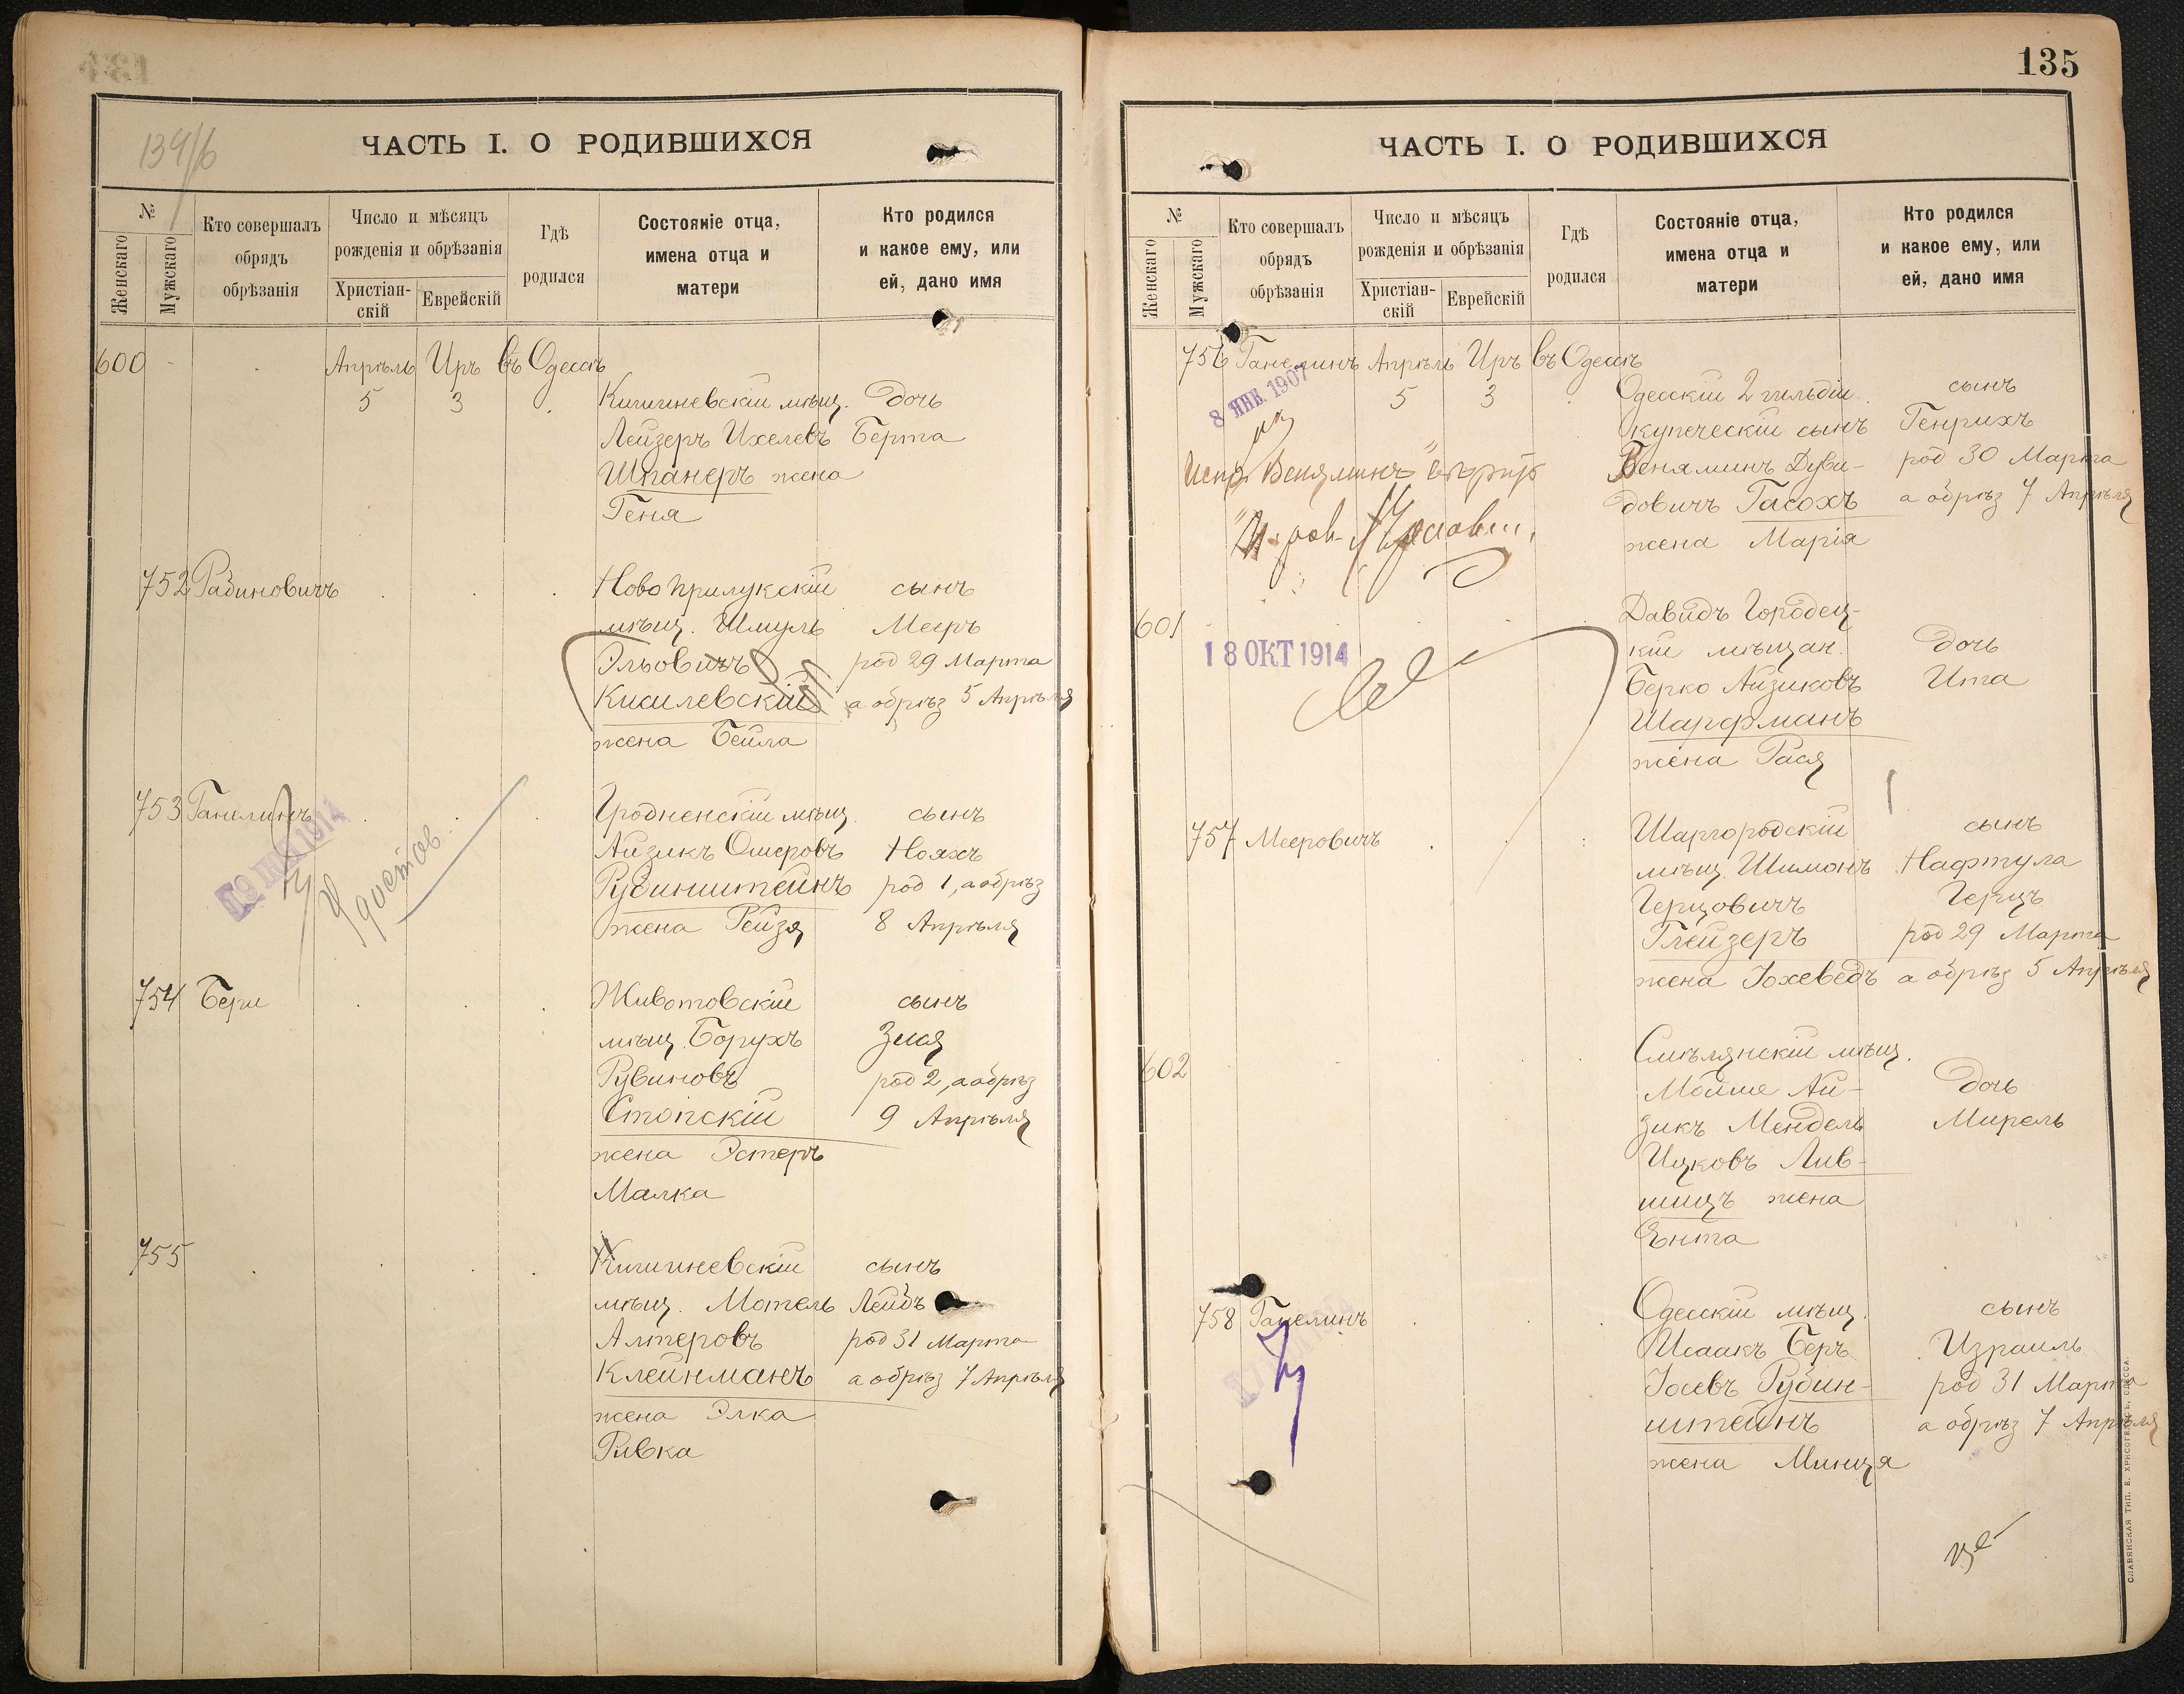 134/б
ЧАСТЬ I. О РОДИВШИХСЯ
№
Женскаго
Мужскаго
Кто совершалъ обрядъ обрѣзанія
Число и мѣсяцъ рожденія и обрѣзанія
Христіан-скій
Еврейскій
Гдѣ родился
Состояніе отца, имена отца и матери
Кто родился и какое ему, или ей, дано имя
600 Апрѣль Иръ въ Одессѣ
5 3 Кишиневскій мѣщ. дочь
Лейзеръ Ихелевъ Берта
Шпанеръ жена
Геня
752 Рабиновичъ Новоприлукскій сынъ
мѣщ. Шмуль Мееръ
Эльовичъ род 29 Марта
Кисилевскій а обрѣз 5 Апрѣля
жена Бейла
753 Ганелинъ Гродненскій мѣщ. сынъ
Айзикъ Ошеровъ Нояхъ
Рубинштейнъ род 1, а обрѣз
жена Рейзя 8 Апрѣля
1914
754 Бери Животовскій сынъ
мѣщ. Борухъ Зися
Рувиновъ род 2, а обрѣз
Стопскій 9 Апрѣля
жена Эстеръ
Малка
755 Кишиневскій сынъ
мѣщ. Мотель Лейбъ
Алтеровъ род 31 Марта
Клейнманъ а обрѣз 7 Апрѣля
жена Элка
Ривка
135
ЧАСТЬ I. О РОДИВШИХСЯ
№
Женскаго
Мужскаго
Кто совершалъ обрядъ обрѣзанія
Число и мѣсяцъ рожденія и обрѣзанія
Христіан-скій
Еврейскій
Гдѣ родился
Состояніе отца, имена отца и матери
Кто родился и какое ему, или ей, дано имя
756 Ганелинъ Апрѣль Иръ въ Одессѣ
8 ЯНВ. 1907
5 3 Одесскій 2 гильдіи сынъ
купеческій сынъ Генрихъ
Веняминъ Дуви- род 30 Марта
довичъ Гасохъ а обрѣз 7 Апрѣля
жена Марія
Испр. Веняминъ
601 Давидъ Городец-
кій мѣщан. дочь
18 ОКТ 1914
Берко Айзиковъ Ита
Шарфманъ
жена Рася
757 Мееровичъ Шаргородскій сынъ
мѣщ. Шимонъ Нафтула
Герцовичъ Герцъ
Глейзеръ род 29 Марта
жена Іохеведъ а обрѣз 5 Апрѣля
602 Смѣлянскій мѣщ.
Мойше Ай- дочь
зикъ Мендель Мирель
Ицковъ Лив-
шицъ жена
Ента
758 Ганелинъ Одесскій мѣщ. сынъ
Исаакъ Беръ Израиль
Іосевъ Рубин- род 31 Марта
штейнъ а обрѣз 7 Апрѣля
жена Минця
СЛАВЯНСКАЯ ТИП. Е. ХРИСОГЕЛОСЪ, ОДЕССА.